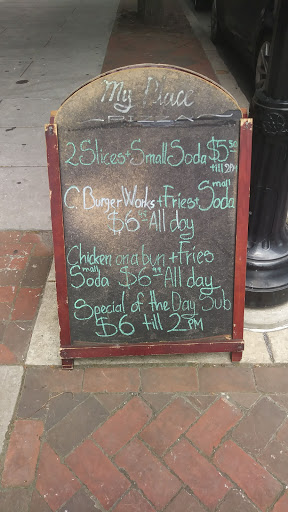 My Place
PIZZA
2 Slices + Small Soda $5.50
till 2PM
C. Burger Works + Fries + Small Soda
$6.95 All day
Chicken on a bun + Fries
small Soda $6.99 All day
Special of the Day Sub
$6 till 2PM